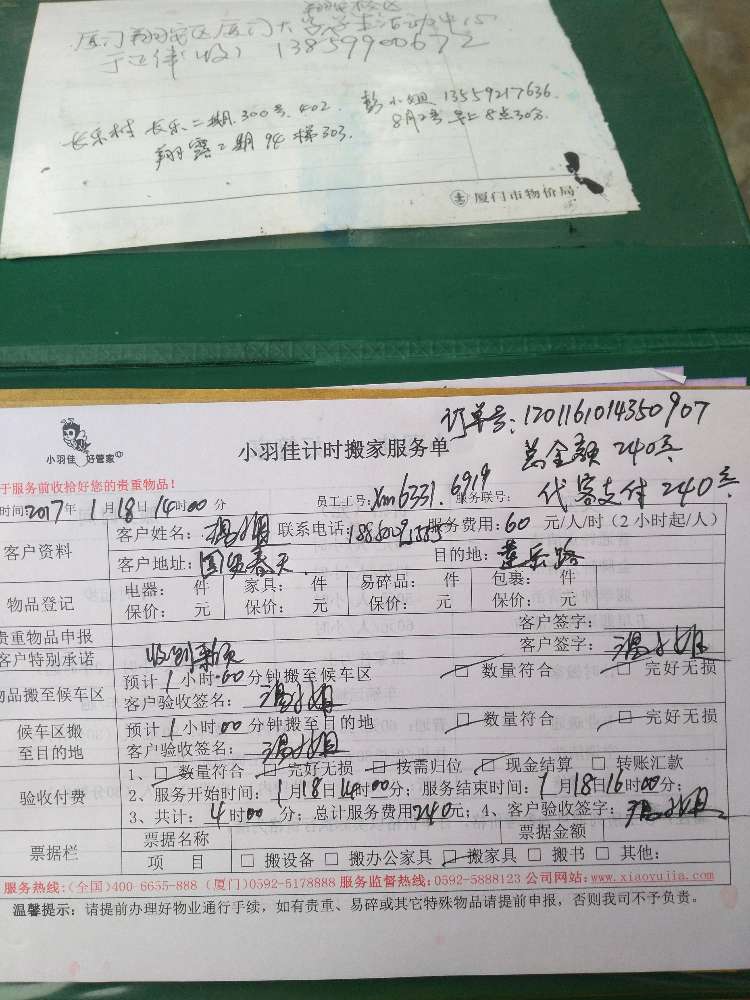 翔安校区
厦门翔安区厦门大学学生活动中心
于正伟(收) 13859900672
长乐村 长乐二期.300号.402. 彭小姐 13559217636.
翔露二期 94梯303. 8月2号早上8点30分
厦门市物价局
订单号:120116101435090​7
小羽佳 好管家
小羽佳计时搬家服务单
总金额 240元
于服务前收拾好您的贵重物品!
代客支付 240元
时间:2017年 1月18日 14时00分 员工工号:Xm6331.6919 服务联号:
客户资料
客户姓名: 温小姐 联系电话: 服务费用:60 元/人/时(2小时起/人)
客户地址:国贸春天. 目的地:莲岳路
物品登记
电器: 件 家具: 件 易碎品: 件 包裹: 件
保价: 元 保价: 元 保价: 元 保价: 元
贵重物品申报 客户签字:
客户特别承诺 客户签字:温小姐
物品搬至候车区
预计1小时00分钟搬至候车区 □ 数量符合 □ 完好无损
客户验收签名: 温小姐
候车区搬至目的地
预计1小时00分钟搬至目的地 □ 数量符合 □ 完好无损
客户验收签名: 温小姐
验收付费
1、□ 数量符合 □ 完好无损 □ 按需归位 □ 现金结算 □ 转账汇款
2、服务开始时间:1月18日14时00分;服务结束时间:1月18日16时00分;
3、共计:4时00分;总计服务费用240元;4、客户验收签字:温小姐
票据栏
票据名称 票据金额
项 目 □ 搬设备 □ 搬办公家具 □ 搬家具 □ 搬书 □ 其他:
服务热线:(全国)400-6655-888 (厦门)0592-5178888 服务监督热线:0592-5888123 公司网站:www.xiaoyujia.com
温馨提示:请提前办理好物业通行手续,如有贵重、易碎或其它特殊物品请提前申报,否则我司不予负责。